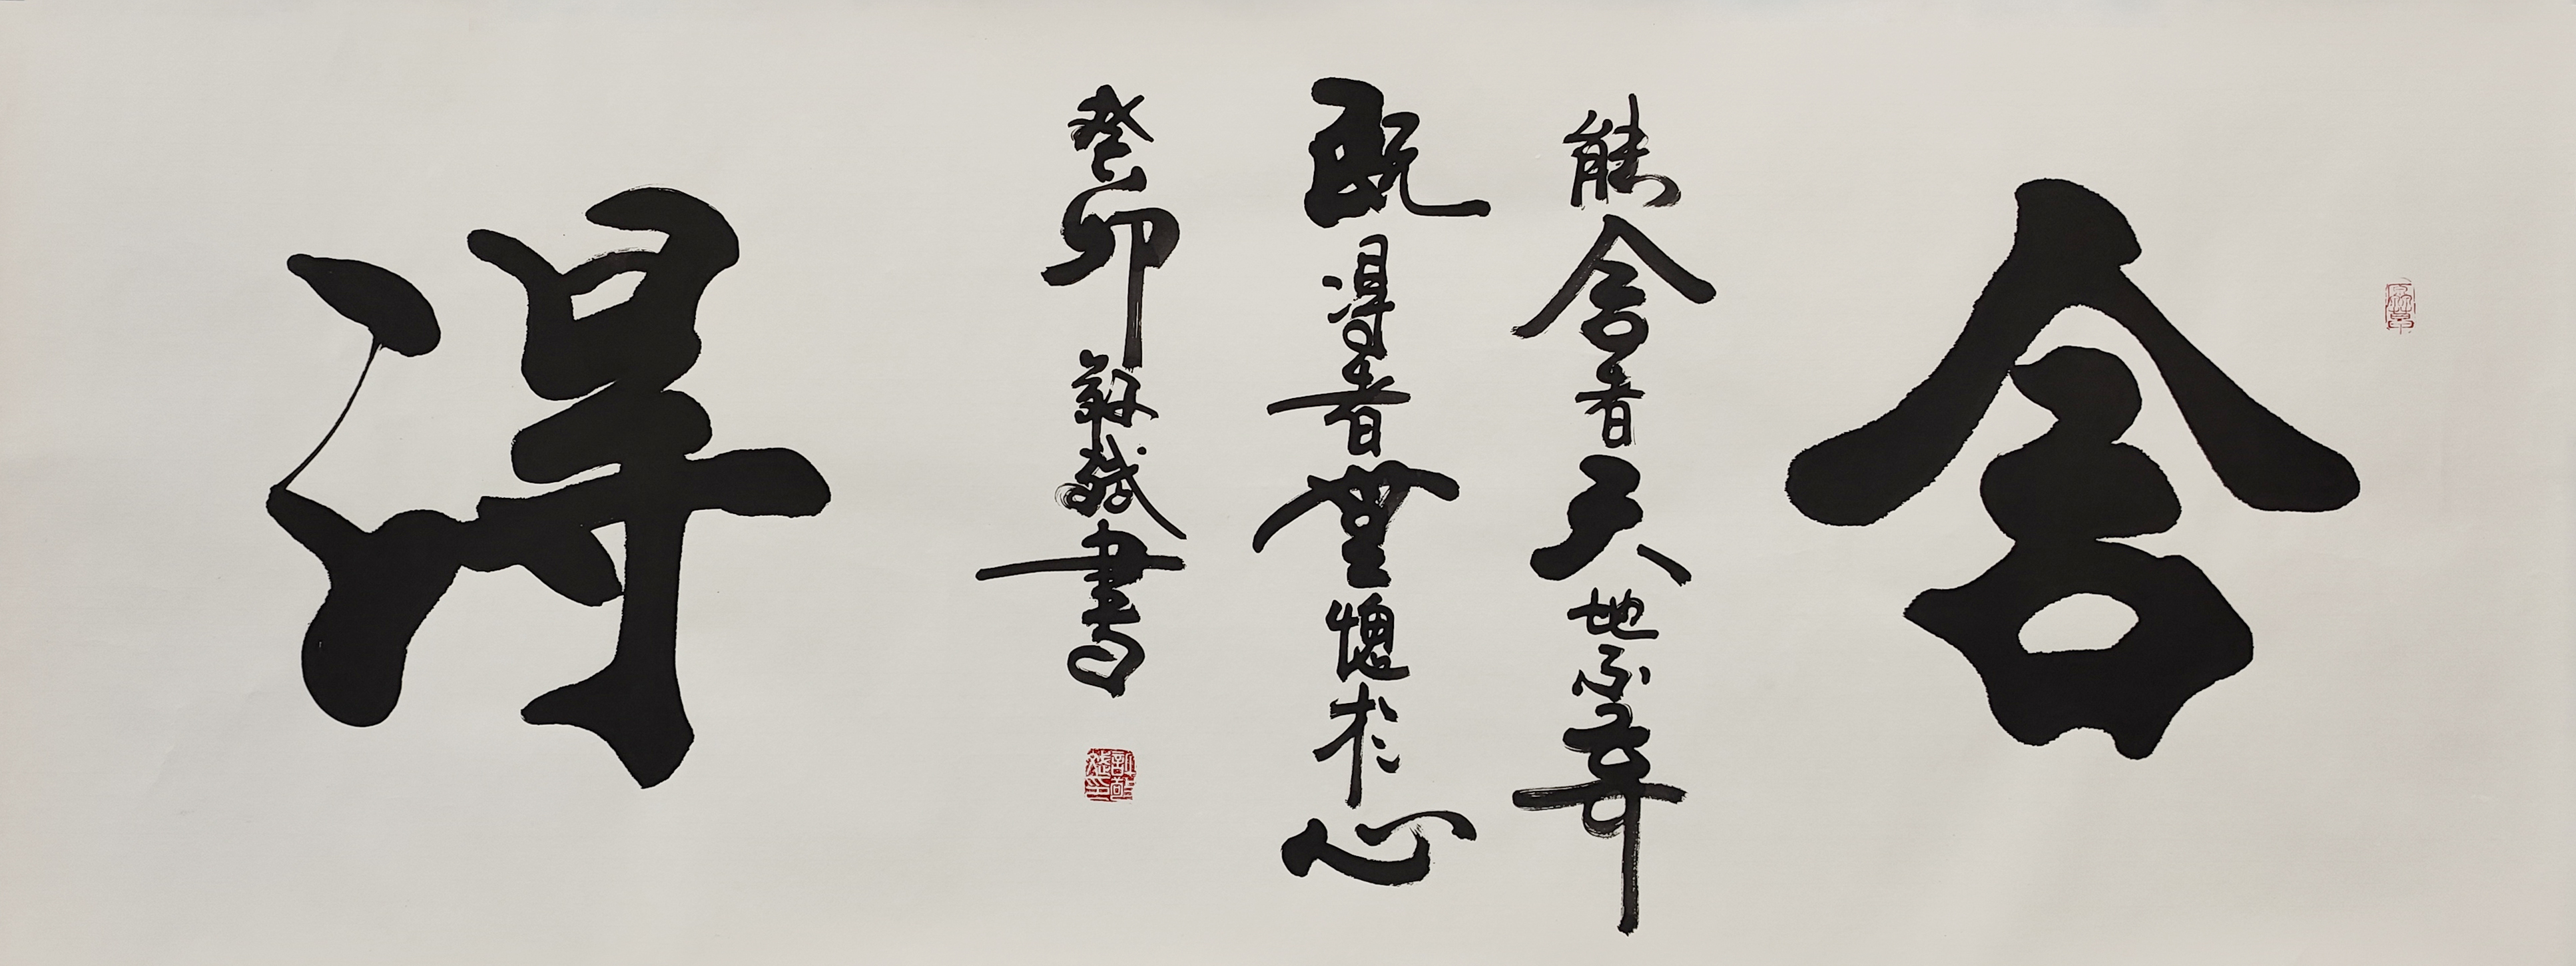 舍
能舍者天地不弃
既得者無愧於心
癸卯敬懿書
得